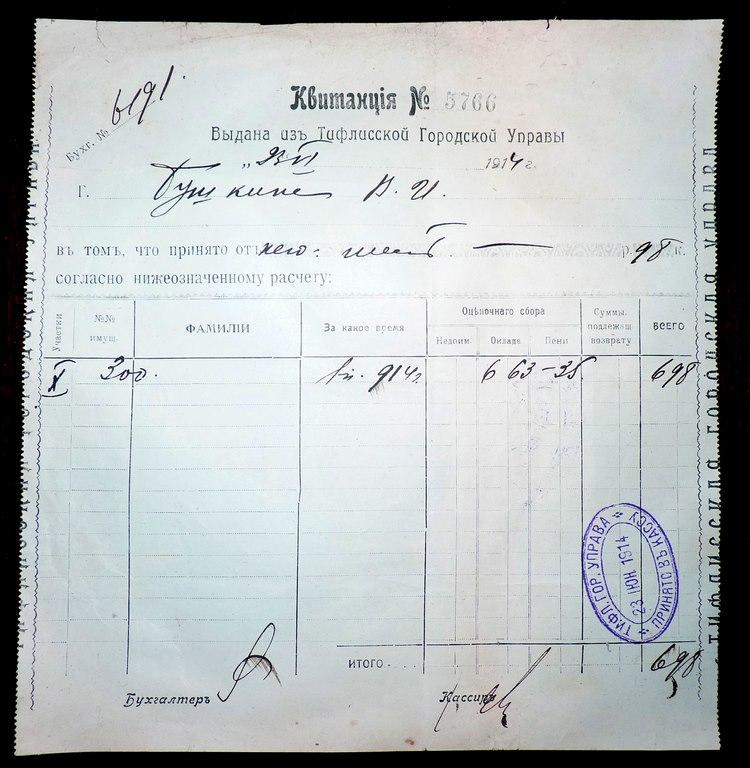 Бухг. № 6191.
Квитанція № 5766
Выдана изъ Тифлисской Городской Управы
1914 г.
Г.
въ томъ, что принято отъ него: шесть — р. 98 к.
согласно нижеозначенному расчету:
Участки
№№ имущ.
ФАМИЛІИ
За какое время
Оцѣночнаго сбора
Недоим.
Оклада
Пени
Суммы, подлежащ возврату
ВСЕГО
X 300. 914 г. 6 63 - 35 698
ТИФЛ. ГОР. УПРАВА
23 ІЮН. 1914
ПРИНЯТО ВЪ КАССУ
ИТОГО 698
Бухгалтеръ
Кассиръ
ТИФЛИССКАЯ ГОРОДСКАЯ УПРАВА